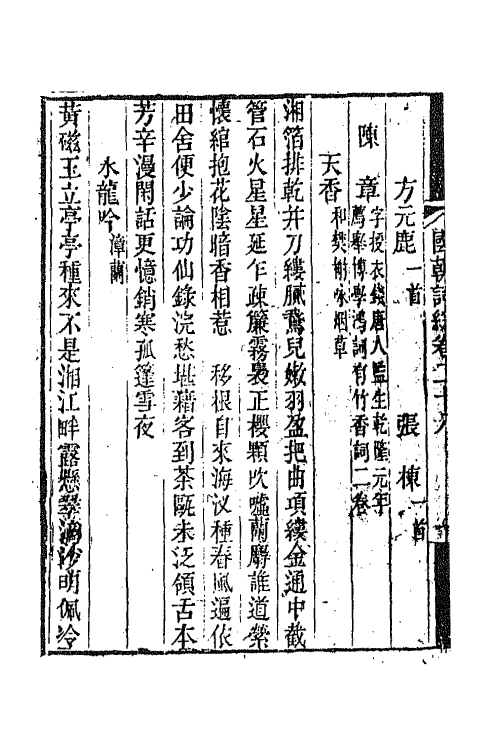 國朝詞綜卷二十八
方元鹿一首　張棟一首
陳章字授衣錢唐人監生乾隆元年薦舉博學鴻詞有竹香詞二卷
天香和樊榭咏烟草
湘箔排乾并刀縷膩鵞兒嫩羽盈把曲項縷金通中截
管石火星星延乍疎簾霧裊正櫻顆吹噓蘭麝誰道縈
懷綰抱花陰暗香相惹　移根自來海汊種春風遍依
田舍便少論功仙錄浣愁堪藉客到茶甌未泛領舌本
芳辛漫閒話更憶銷寒孤篷雪夜
水龍吟漳蘭
黃磁玉立亭亭種來不是湘江畔露懸翠滴沙明佩冷